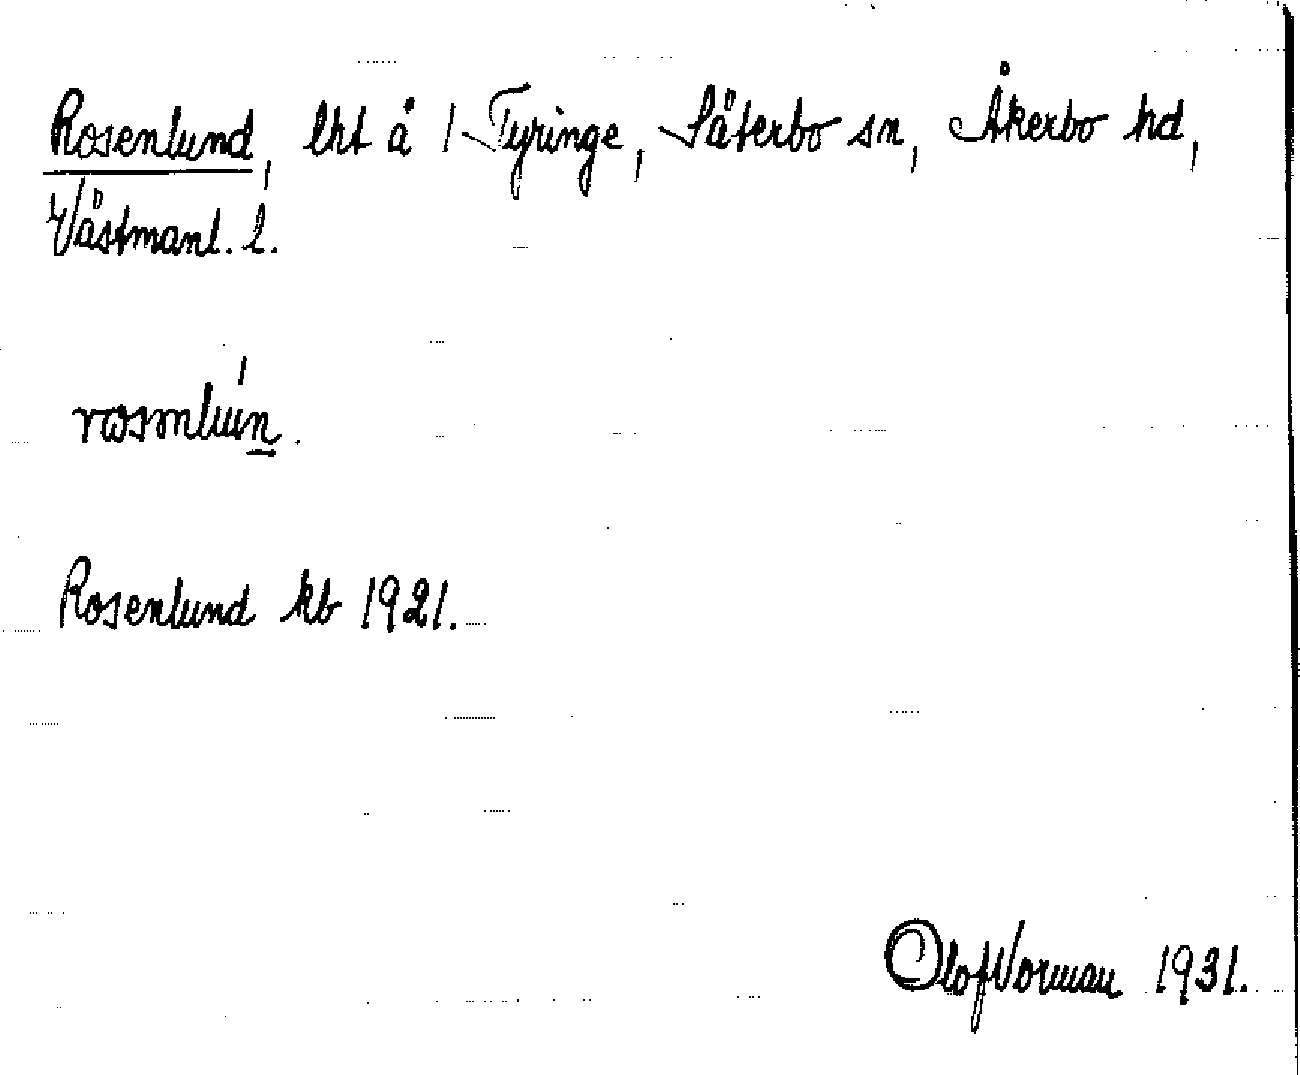 Rosenlund, lht å 1 Tyringe, Säterbo sn, Åkerbo hd,
Västmanl. l.
rosmluń.
Rosenlund kb 1921.
Olof Norman 1931.